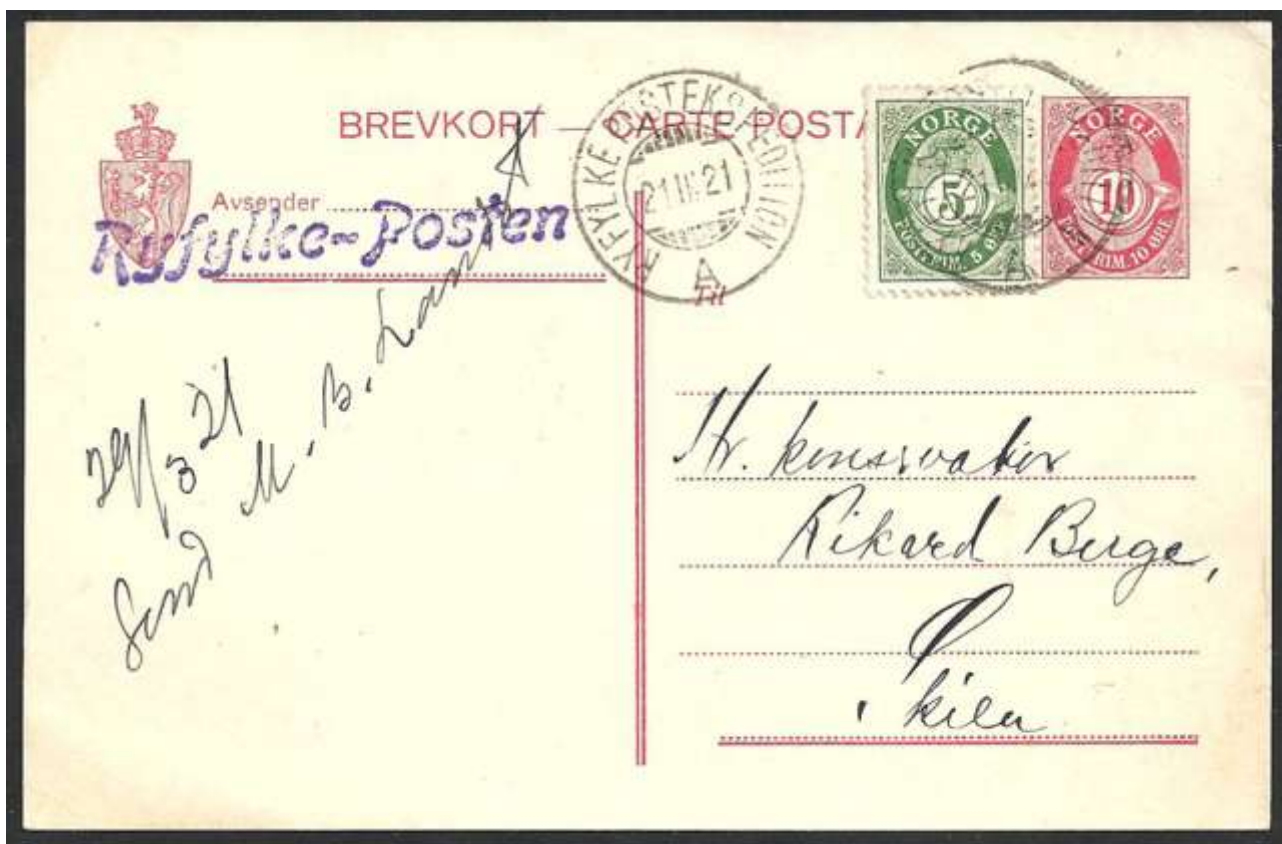 BREVKORT — CARTE POSTA
Avsender
Ryfylke-Posten
RYFYLKE POSTEKSPEDITION
21 III 21
A
NORGE
5
POSTFRIM. 5 ØRE
NORGE
10
POSTFRIM. 10 ØRE
Til
Hr. konservator
Rikard Berge,
Skien
M. B.